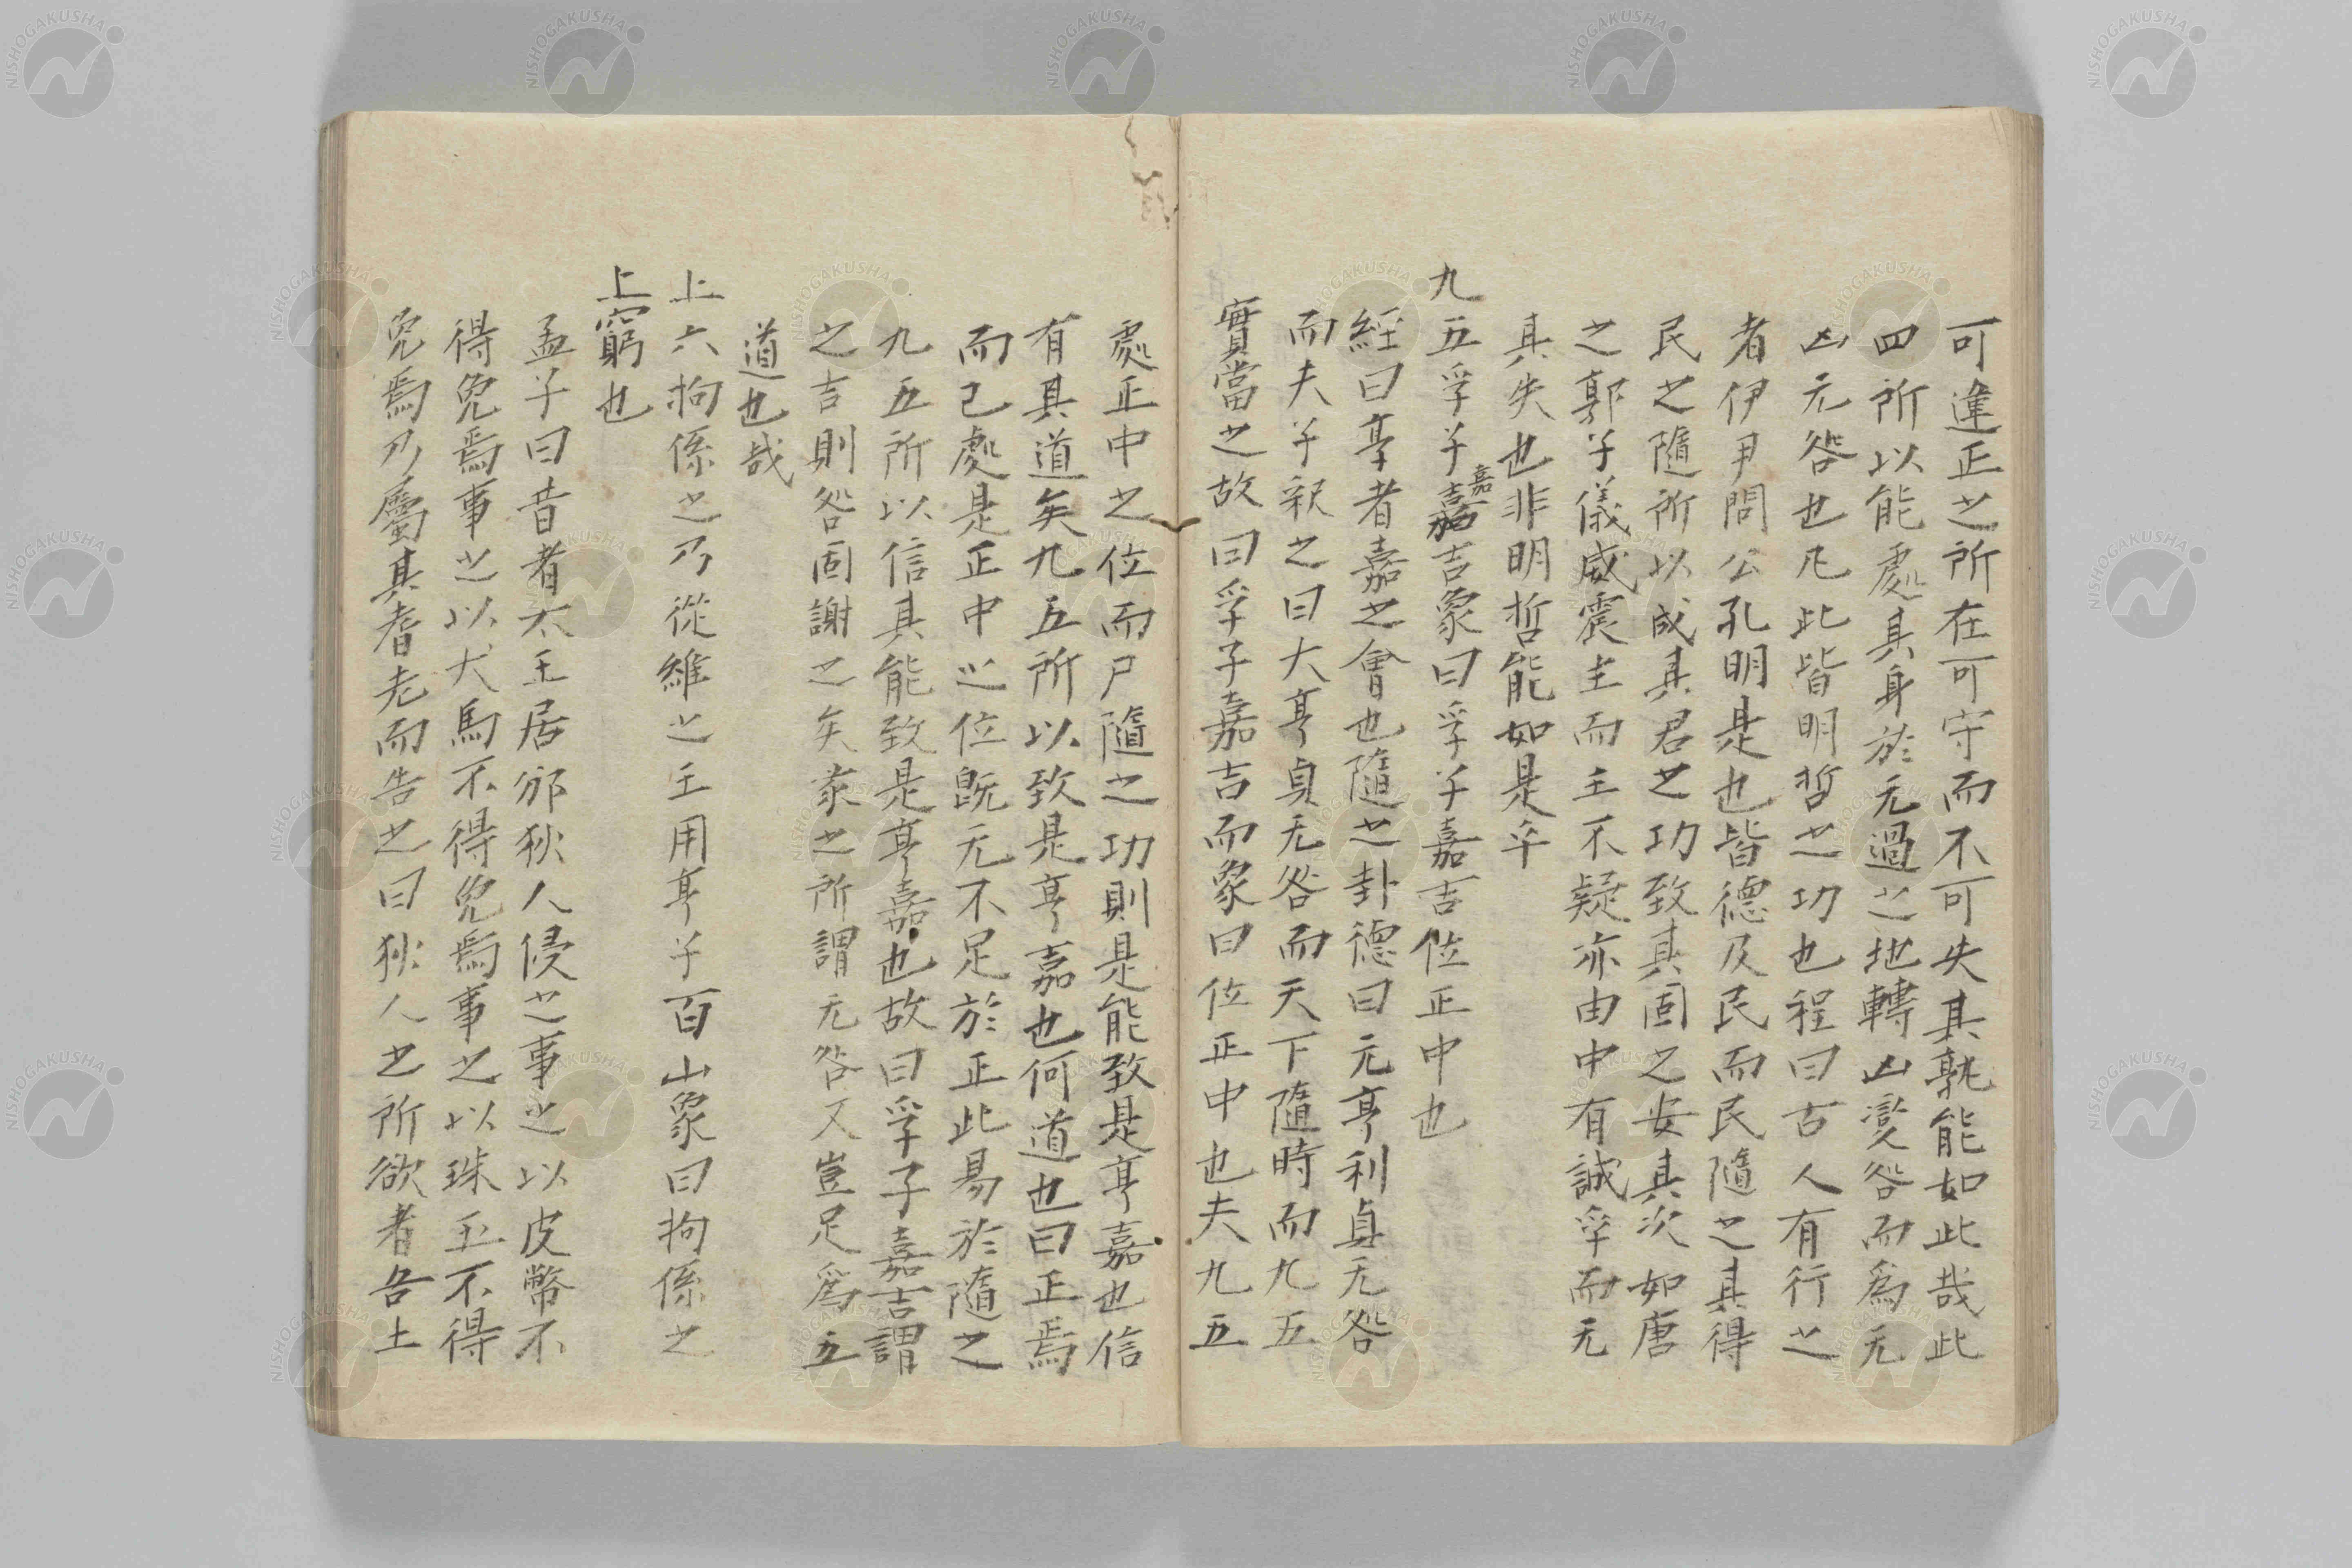 可違正之所在可守而不可失其孰能如此哉此
四所以能處其身於无過之地轉凶變咎而爲无
凶无咎也凡此皆明哲之功也程曰古人有行之
者伊尹問公孔明是也皆德及民而民隨之其得
民之隨所以成其君之功致其固之安其次如唐
之郭子儀威震主而主不疑亦由中有誠孚而无
其失也非明哲能如是乎
九五孚于嘉吉象曰孚于嘉吉位正中也
經曰亨者嘉之會也隨之卦德曰元亨利貞无咎
而夫子釈之曰大亨貞无咎而天下隨時而九五
實當之故曰孚子嘉吉而象曰位正中也夫九五
處正中之位而尸隨之功則是能致是亨嘉也信
有其道矣九五所以致是亨嘉也何道也曰正焉
而已處是正中之位既无不足於正此易於隨之
九五所以信其能致是亨嘉也故曰孚子嘉吉謂
之吉則咎固謝之矣彖之所謂无咎又豈足爲五
道也哉
上六拘係之乃從維之王用亨于百山象曰拘係之
上窮也
孟子曰昔者太王居邠狄人侵之事之以皮幣不
得免焉事之以犬馬不得免焉事之以珠玉不得
免焉乃屬其耆老而告之曰狄人之所欲者吾土
NISHOGAKUSHA